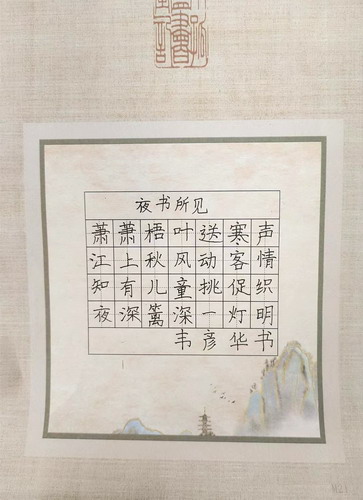 夜书所见
萧萧梧叶送寒声
江上秋风动客情
知有儿童挑促织
夜深篱深一灯明
韦彦华书